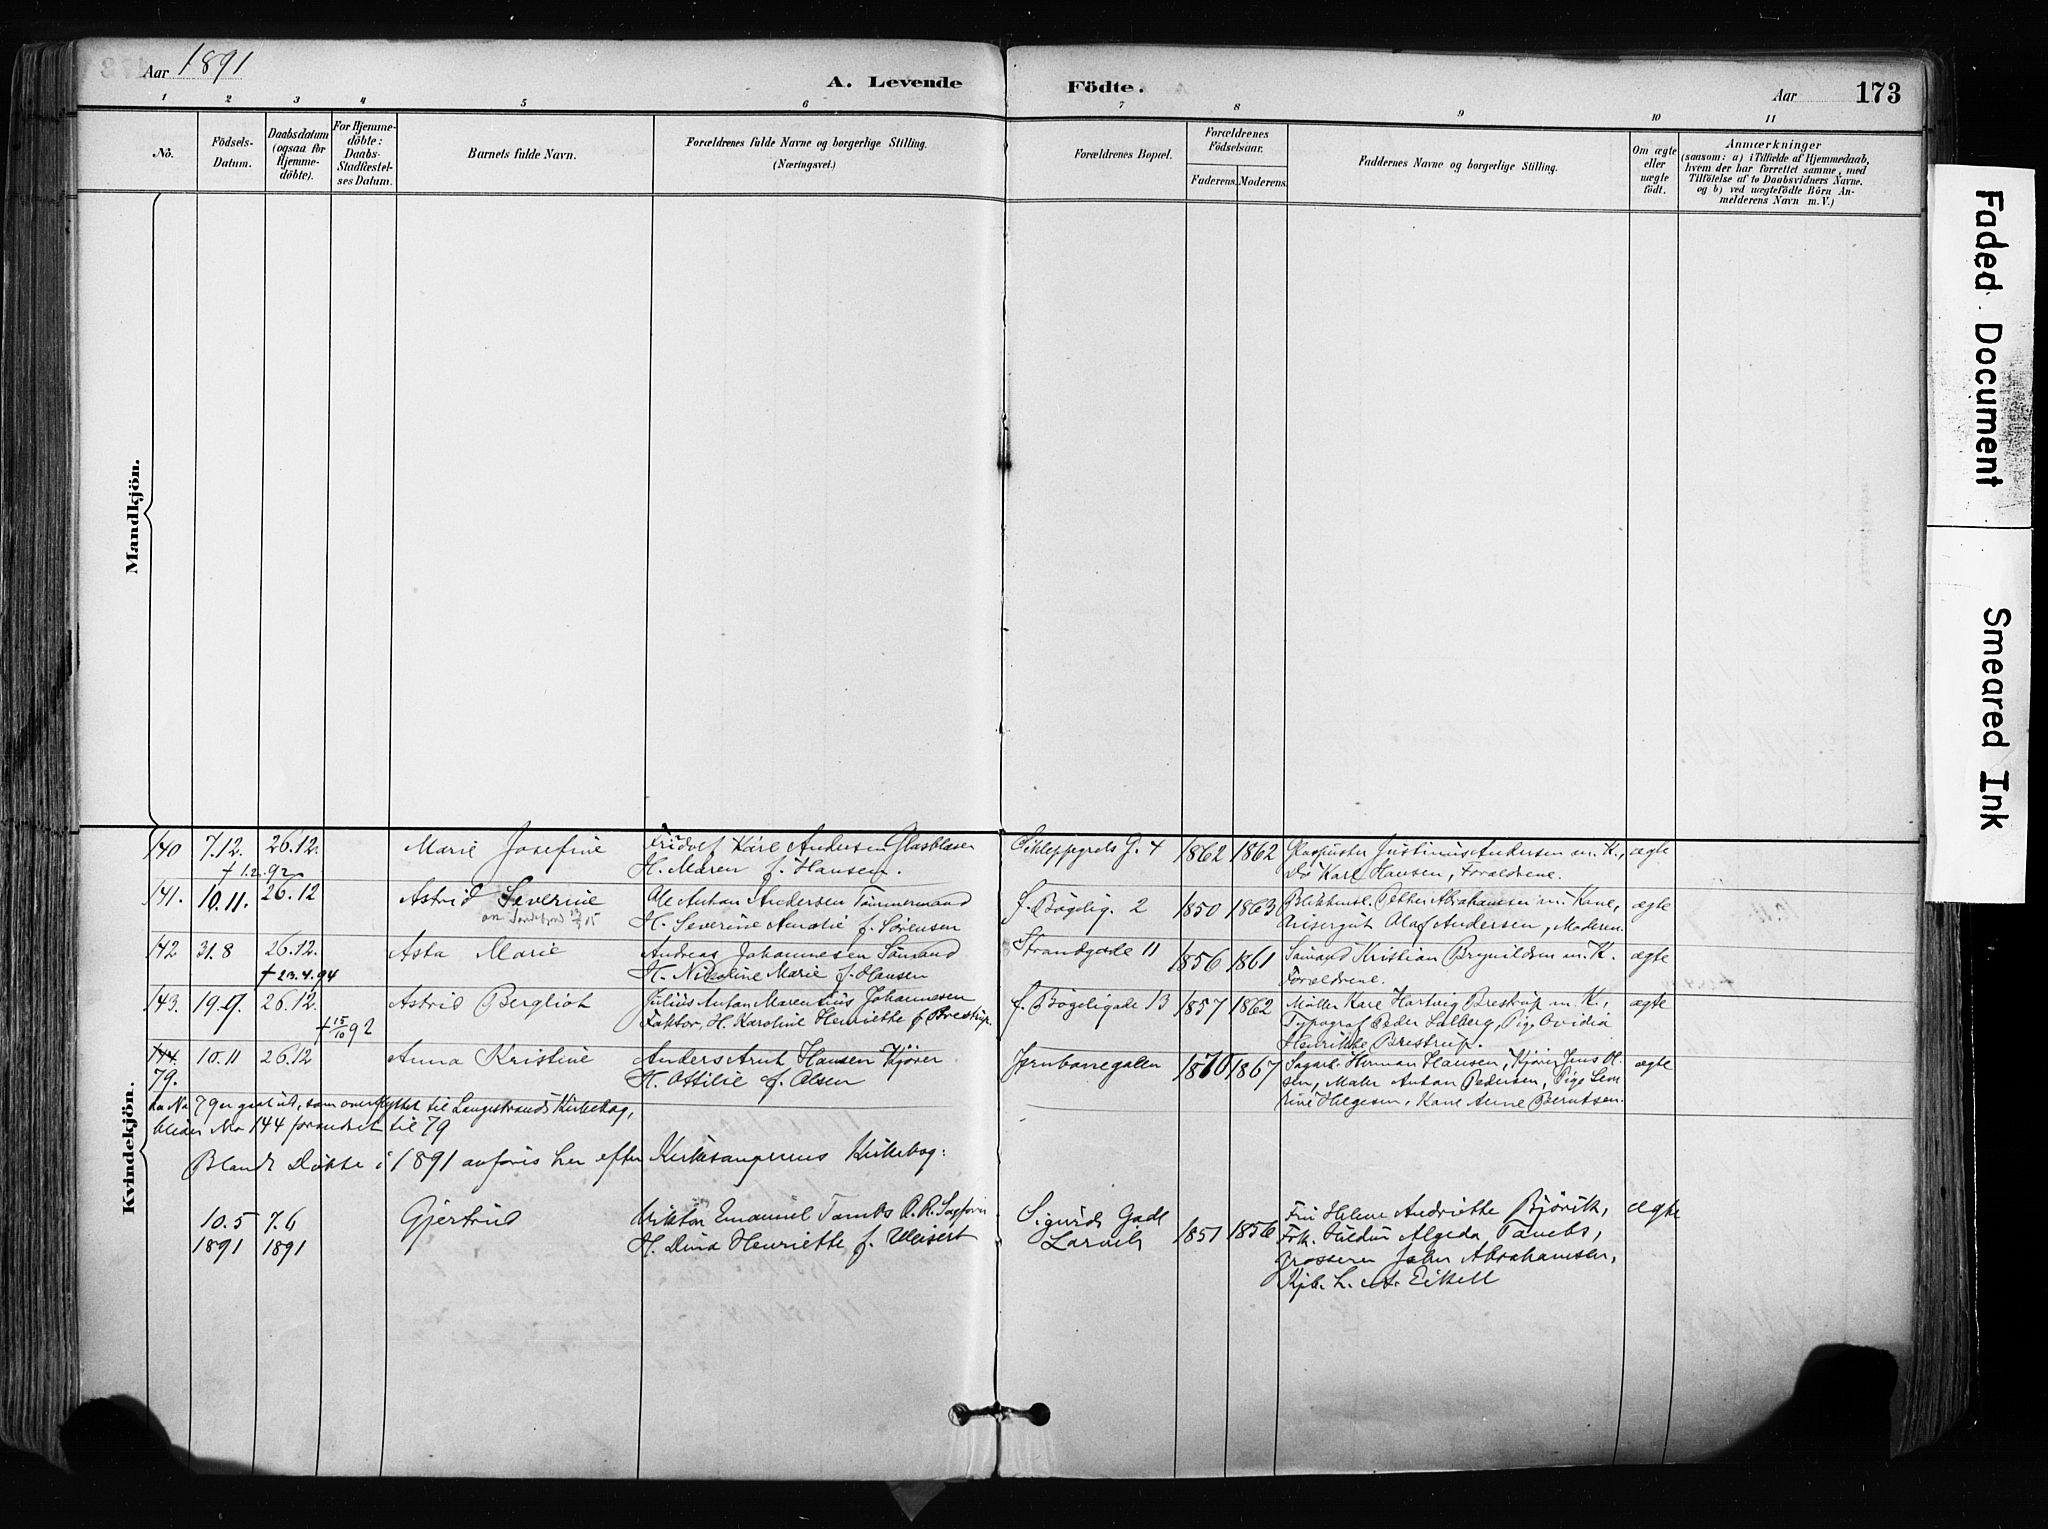 Aar 1891
A. Levende Födte.
Aar 173
1 2 3 4 5 6 7 8 9 10 11
No.
Födsels-
Datum.
Daabsdatum
(ogsaa for
Hjemme-
döbte).
For Hjemme-
döbte:
Daabs-
Stadfæstel-
ses Datum.
Barnets fulde Navn.
Forældrenes fulde Navne og borgerlige Stilling.
(Næringsvei.)
Forældrenes Bopæl.
Forældrenes
Födselsaar.
Faderens. Moderens.
Faddernes Navne og borgerlige Stilling.
Om ægte
eller
uægte
født.
Anmærkninger
(saasom: a) i Tilfælde af Hjemmedaab,
hvem der har forrettet samme, med
Tilföielse af to Daabsvidners Navne.
og b) ved uægtefödte Börn An-
melderens Navn m. V.)
Mandkjön.
Kvindekjön.
140 7.12. 26.12. Marie Josefine
Karl Andersen Glasblæser
H. Maren f. Hansen.
G. 4 1862 1862
Justinus Andersen m. K.,
Karl Hansen, Forældrene.
ægte
† 1.2.92
141. 10.11. 26.12 Astrid Severine
Ole Anton Andersen Tömmermand
H. Severine Amalie f. Sörensen
f. Bögelig. 2 1850 1863
Petter Abrahamsen m. Kone,
Olaf Andersen, Moderen.
ægte
142 31.8 26.12. Asta Marie
† 23.4.94
Andreas Johannesen Sömand
H. Nikoline Marie f. Hansen
Strandgade 11 1856 1861
Sömand Kristian Brynildsen m. K.
Forældrene.
ægte
143. 19.9. 26.12. Astrid Bergliot
† 15/10 92
Julius Anton Marentius Johannesen
Faktor, H. Karoline Henriette f. Brestrup.
f. Bögeligade 13 1857 1862
Möller Karl Hartvig Brestrup m. K.,
Typograf Peder Solberg, Pige Ovidia
Henrikke Brestrup.
ægte
144. 10.11 26.12 Anna Kristine
79.
Anders Arnt Hansen Kjörer
H. Ottilie f. Olsen
Jernbanegaden 1870 1867
Herman Hansen, Kjörer Jens Ol-
sen, Maler Anton Pedersen, Pige Seve-
rine Helgesen, Kone Anne Berntsen.
ægte
da No 79 er gaat ud, som overflyttet til Langestrands Kirkebog,
bliver No 144 forandret til 79
Blandt Döbte i 1891 anföres her efter Kirkesangerens Kirkebog:
10.5 7.6 Gjertrud
1891 1891
Viktor Emanuel
H. Dina Henriette f.
Sigurds Gade
Larvik
1851 1856
Fru Helene Andriette Björvik,
Frk.
Grosserer John Abrahamsen,
ægte
Faded Document
Smeared Ink